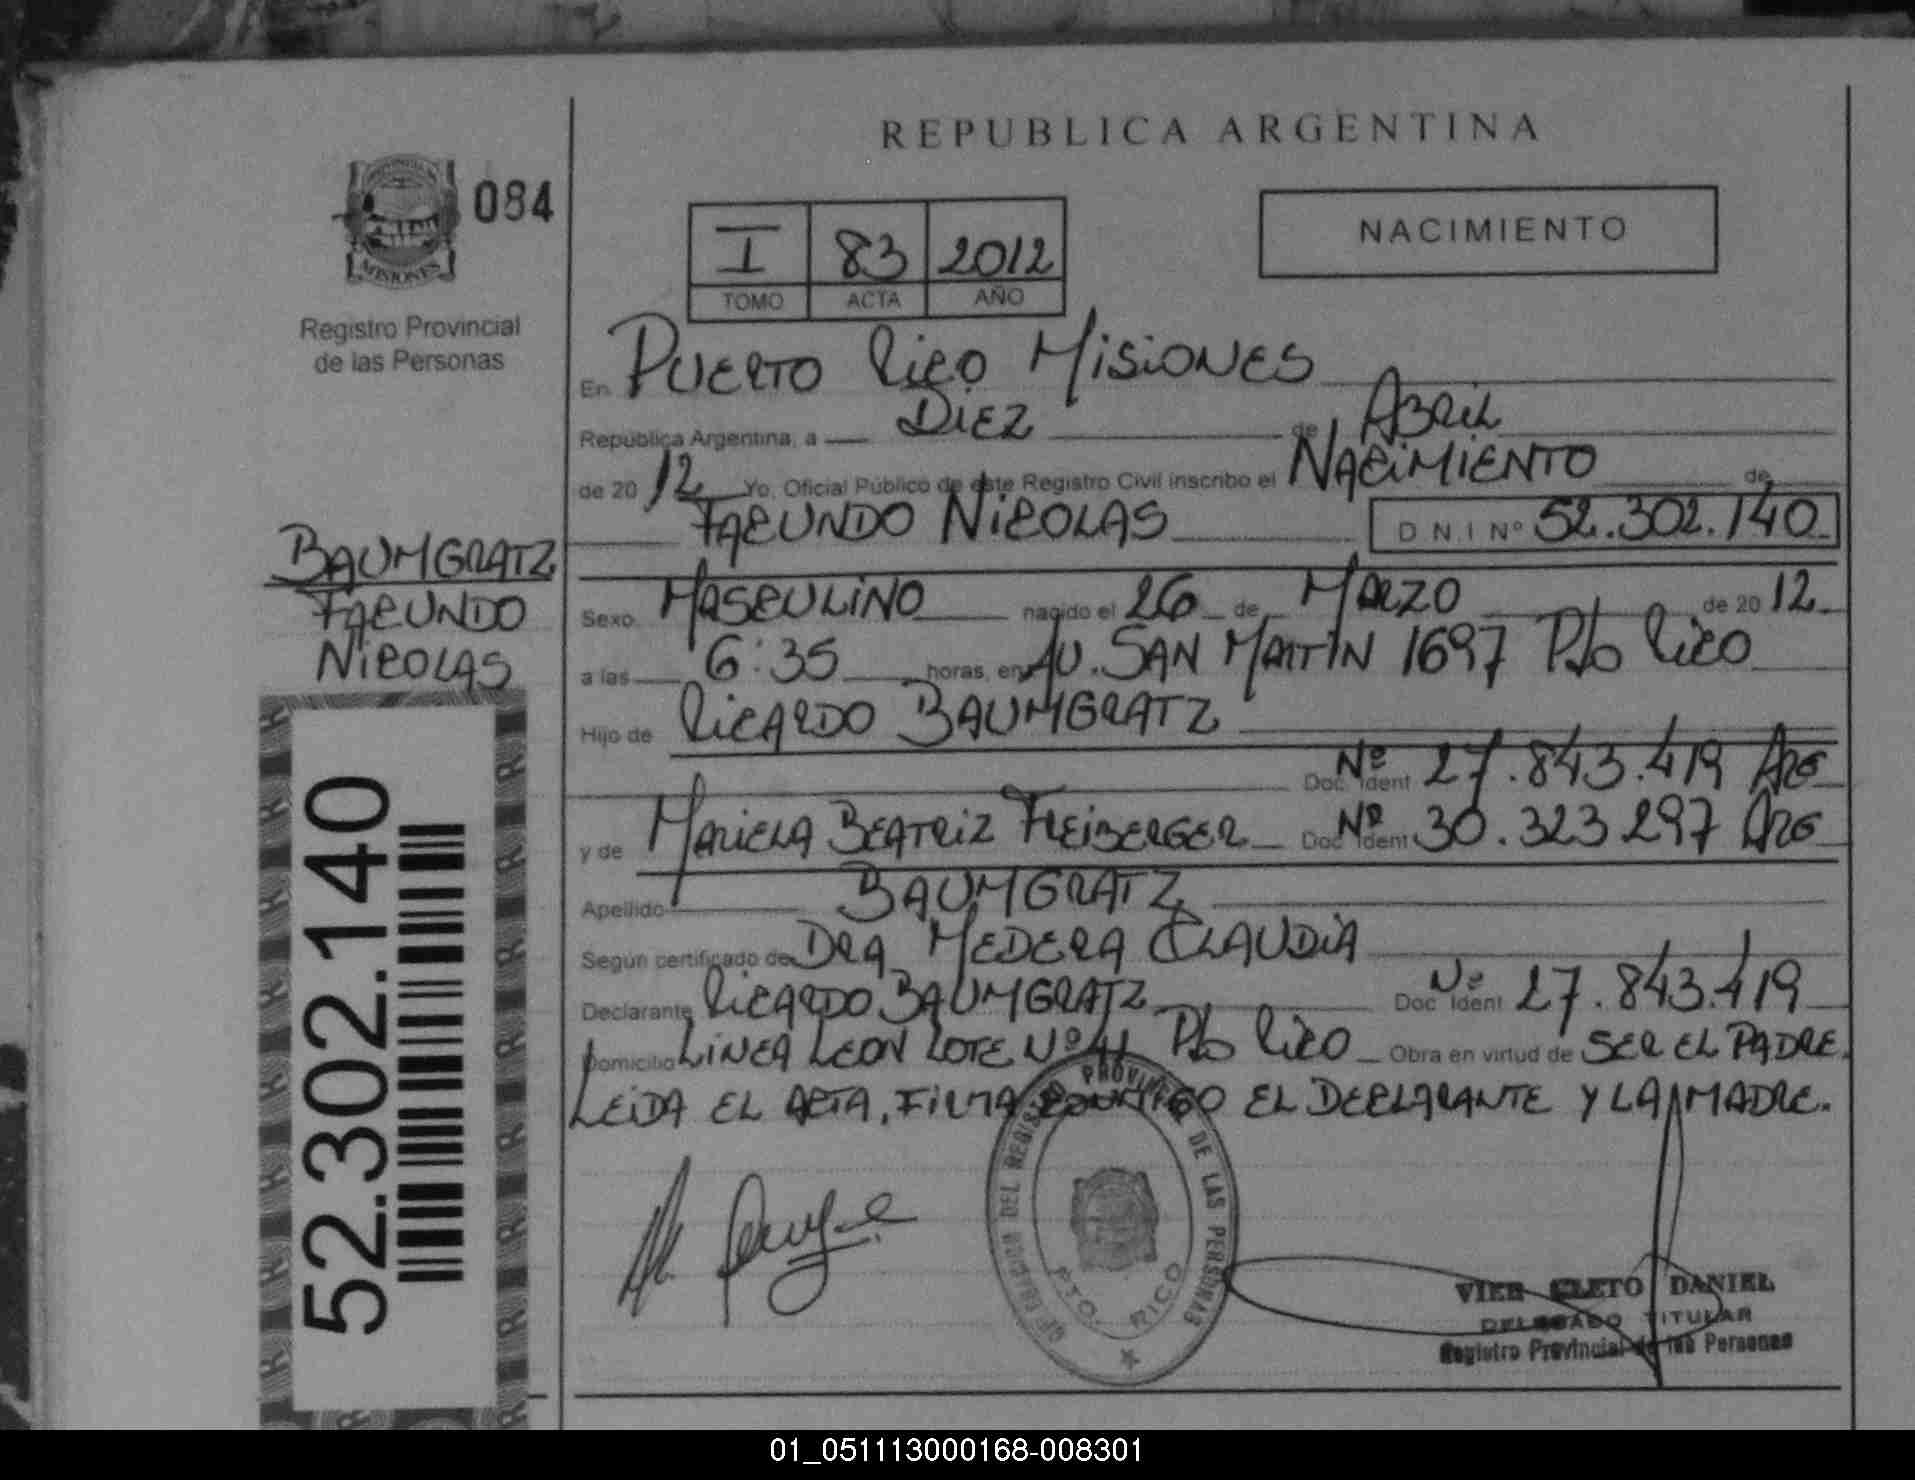 REPUBLICA ARGENTINA
PROVINCIA DE
MISIONES
084
Registro Provincial
de las Personas
I 83 2012
TOMO ACTA AÑO
NACIMIENTO
En PUERTO RICO MISIONES
República Argentina, a DIEZ de ABRIL
de 2012 Yo, Oficial Público de este Registro Civil inscribo el NACIMIENTO de
FACUNDO NICOLAS D N I Nº 52.302.140
BAUMGRATZ
FACUNDO
NICOLAS
Sexo MASCULINO nacido el 26 de MARZO de 2012
a las 6:35 horas, en AV. SAN MARTIN 1697 Pto RICO
Hijo de RICARDO BAUMGRATZ
Doc. Ident Nº 27.843.419 ARG
y de MARIELA BEATRIZ FREIBERGER Doc. Ident Nº 30.323.297 ARG
Apellido BAUMGRATZ
Según certificado de DRA MEDERA CLAUDIA
Declarante RICARDO BAUMGRATZ Doc. Ident Nº 27.843.419
Domicilio LINEA LEON LOTE Nº 41 Pto RICO Obra en virtud de SER EL PADRE.
LEIDA EL ACTA, FIRMA CONMIGO EL DECLARANTE Y LA MADRE.
52.302.140
DELEGACION DEL REGISTRO PROVINCIAL DE LAS PERSONAS
PTO. RICO
VIER CLETO DANIEL
DELEGADO TITULAR
Registro Provincial de las Personas
01_051113000168-008301